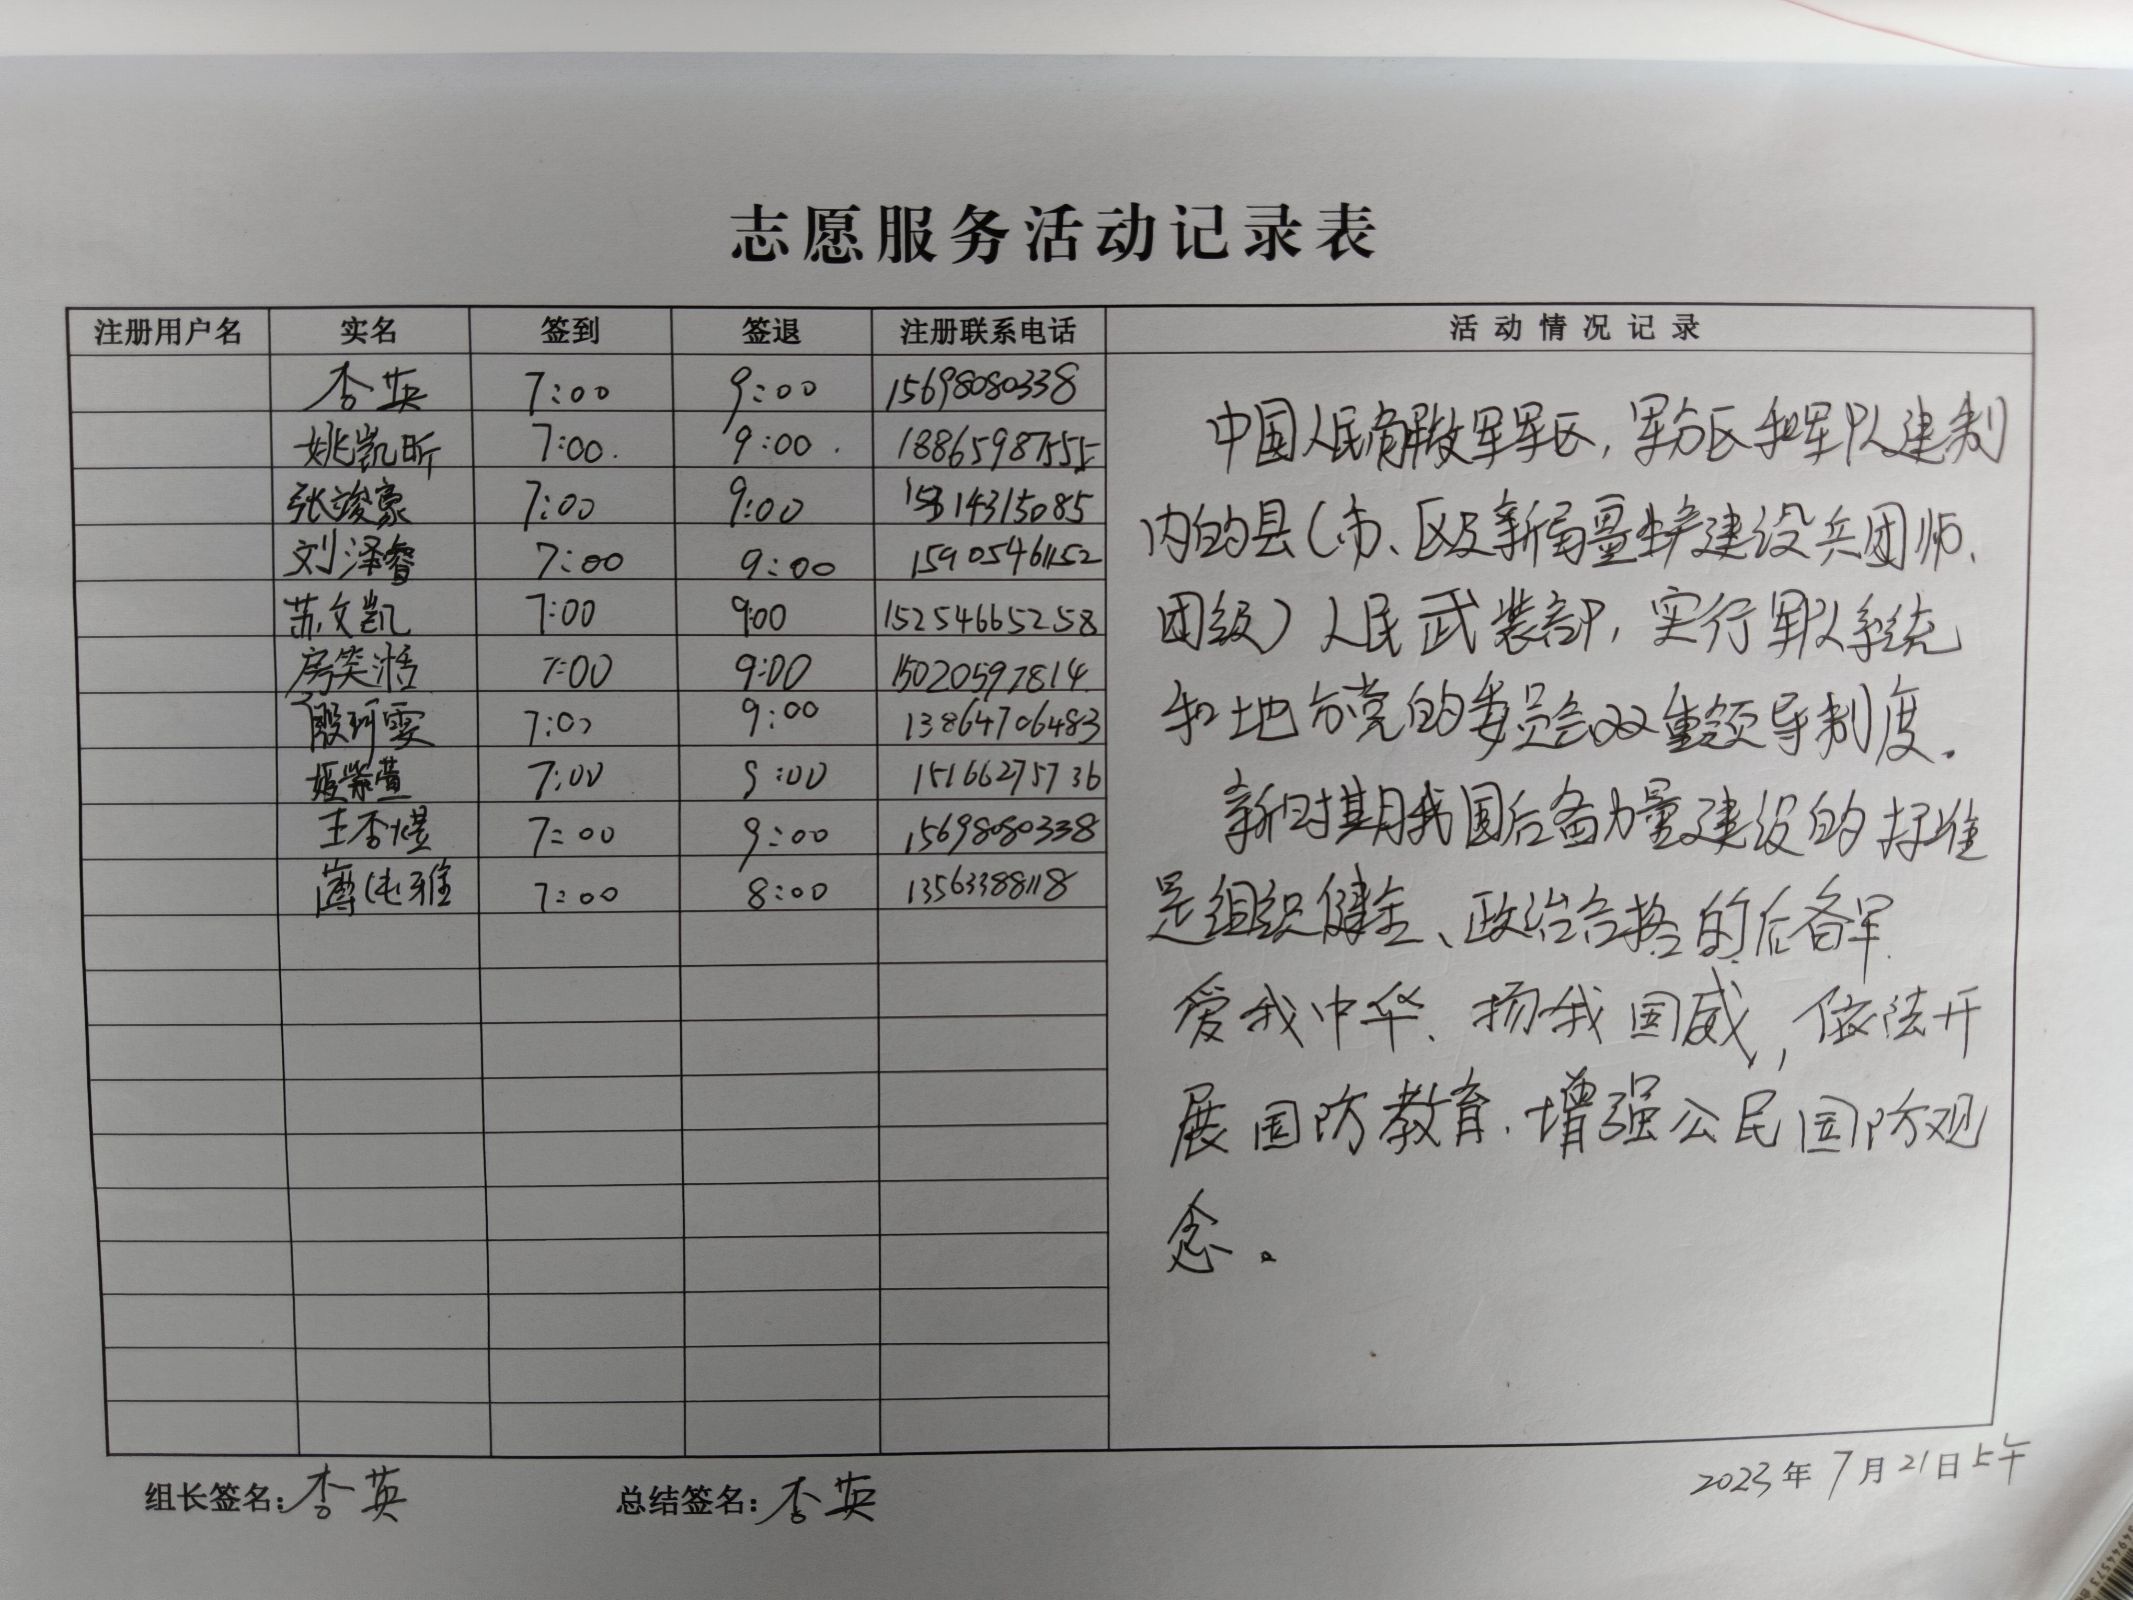 志愿服务活动记录表
注册用户名 实名 签到 签退 注册联系电话 活动情况记录
杏英 7:00 9:00 15698080338
姚凯昕 7:00. 9:00. 18865987555
张竣豪 7:00 9:00 15314315085
刘泽睿 7:00 9:00 15905461152
苏文凯 7:00 9:00 15254665258
房笑湉 7:00 9:00 15020597814
殷珂雯 7:00 9:00 13864706483
姬紫萱 7:00 9:00 15166275736
王杏煜 7:00 9:00 15698080338
雅 7:00 8:00 13563388118
中国人民解放军军区，军分区和军队建制
内的县（市、区及新疆生产建设兵团师、
团级）人民武装部，实行军队系统
和地方党的委员会双重领导制度。
新时期我国后备力量建设的标准
是组织健全、政治合格的后备军.
爱我中华、扬我国威，依法开
展国防教育.增强公民国防观
念。
组长签名：杏英 总结签名：杏英 2023年7月21日上午